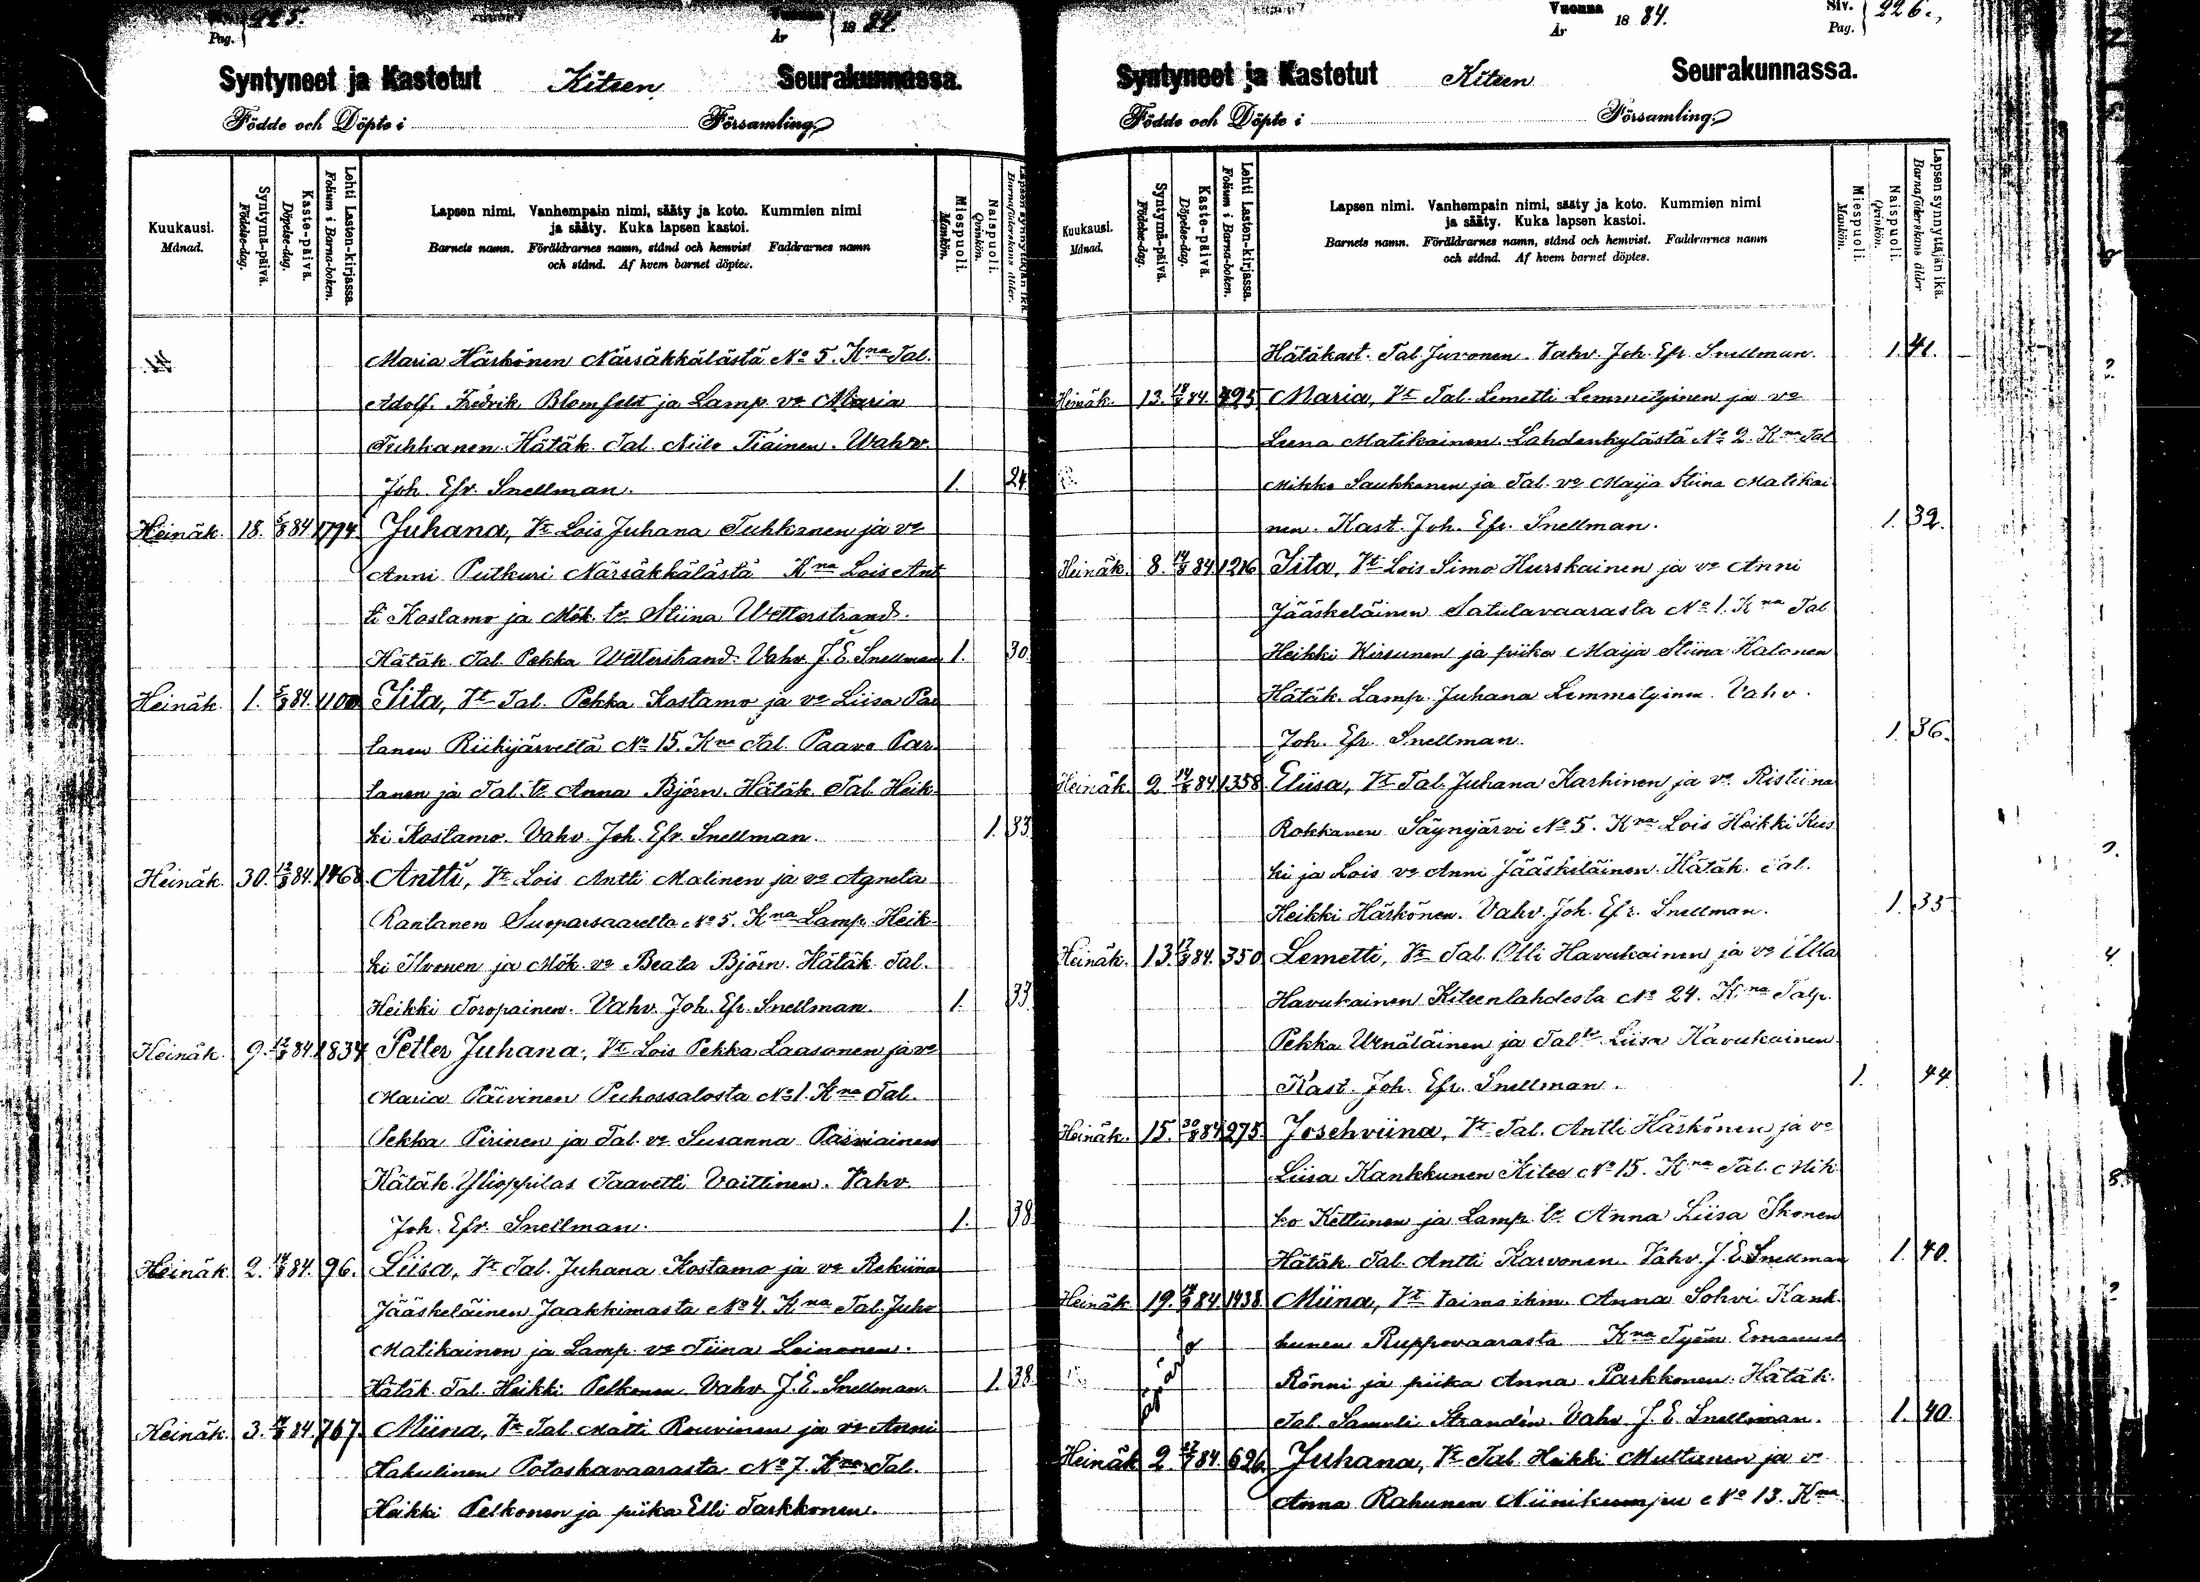 225.
Pag.
Vuonna
År
1884.
Syntyneet ja Kastetut Kiteen Seurakunnassa.
Födde och Döpte i Församling
Kuukausi.
Månad.
Syntymä-päivä.
Födelse-dag.
Kaste-päivä.
Döpelse-dag.
Lehti Lasten-kirjassa.
Folium i Barna-boken.
Lapsen nimi. Vanhempain nimi, sääty ja koto. Kummien nimi
ja sääty. Kuka lapsen kastoi.
Barnets namn. Föräldrarnes namn, stånd och hemvist. Faddrarnes namn
och stånd. Af hvem barnet döptes.
Miespuoli.
Mankön.
Naispuoli.
Qvinkön.
Lapsen synnyttäjän ikä.
Barnaföderskans ålder.
Maria Härkönen Närsäkkälästä No 5. Kna Tal.
Adolf Fredrik Blomfelt ja Lamp. vo Maria
Tuhkanen Hätäk. Tal. Niilo Tiainen. Wahv.
Joh. Efr. Snellman. 1. 24
Heinäk. 18. 5/8 84 1794 Juhana, Vt Lois Juhana Tuhkanen ja vo
Anni Putkuri Närsäkkälästä Kna Lois Ant
ti Kostamo ja Mök. tr Stiina Wetterstrand.
Hätäk. Tal. Pekka Wetterstrand. Vahv. J. E. Snellman 1. 30.
Heinäk. 1. 5/8 84. 1100 Iita, Vt Tal. Pekka Kostamo ja vo Liisa Par
tanen Riihijärveltä No 15. Kna Tal. Paavo Par
tanen ja Tal. tr Anna Björn. Hätäk. Tal. Heik
ki Kostamo. Vahv. Joh. Efr. Snellman. 1. 33.
Heinäk. 30. 12/8 84. 1468 Antti, Vt Lois Antti Malinen ja vo Agneta
Rantanen Suoparsaarelta No 5. Kna Lamp. Heik
ki Ilvonen ja Mök. vo Beata Björn. Hätäk. Tal.
Heikki Toropainen. Vahv. Joh. Efr. Snellman. 1. 33.
Heinäk. 9. 12/8 84. 1834 Petter Juhana, Vt Lois Pekka Laasonen ja vo
Maria Päivinen Puhossalosta No 1. Kna Tal.
Pekka Pirinen ja Tal. vo Susanna Parviainen
Hätäk. Ylioppilas Taavetti Vaittinen. Vahv.
Joh. Efr. Snellman. 1. 38
Heinäk. 2. 14/8 84. 96. Liisa, Vt Tal. Juhana Kostamo ja vo Rekiina
Jääskeläinen Jaakkimasta No 4. Kna Tal. Juho
Matikainen ja Lamp. vo Tiina Leinonen.
Hätäk. Tal. Heikki Pelkonen. Vahv. J. E. Snellman. 1. 38.
Heinäk. 3. 84. 767. Miina, Vt Tal. Matti Rouvinen ja vo Anni
Hakulinen Potoskavaarasta No 7. Kna Tal.
Heikki Pelkonen ja piika Elli Tarkkonen.
Vuonna
År
1884.
Siv.
Pag.
226.
Syntyneet ja Kastetut Kiteen Seurakunnassa.
Födde och Döpte i Församling
Kuukausi.
Månad.
Syntymä-päivä.
Födelse-dag.
Kaste-päivä.
Döpelse-dag.
Lehti Lasten-kirjassa.
Folium i Barna-boken.
Lapsen nimi. Vanhempain nimi, sääty ja koto. Kummien nimi
ja sääty. Kuka lapsen kastoi.
Barnets namn. Föräldrarnes namn, stånd och hemvist. Faddrarnes namn
och stånd. Af hvem barnet döptes.
Miespuoli.
Mankön.
Naispuoli.
Qvinkön.
Lapsen synnyttäjän ikä.
Barnaföderskans ålder
Hätäkast. Tal. Juvonen. Vahv. Joh. Efr. Snellman. 1. 41.
Heinäk. 13. 84. 495 Maria, Vt Tal. Lemetti Lemmitzinen ja vo
Leena Matikainen. Lahdenkylästä No 2. Kna Tal
Mikko Sauhkonen ja Tal. vo Maija Stiina Matikai
nen. Kast. Joh. Efr. Snellman. 1. 32.
Heinäk. 8. 14/8 84 1216 Iita, Vt Lois Simo Hurskainen ja vo Anni
Jääskeläinen Satulavaarasta No 1. Kna Tal
Heikki Hirsunen ja piika Maija Stiina Halonen
Hätäk. Lamp. Juhana Lemmitzinen. Vahv.
Joh. Efr. Snellman. 1. 36.
Heinäk. 2 14/8 84 1358 Eliisa, Vt Tal. Juhana Karhinen ja vo Ristiina
Rokkanen Säynejärvi No 5. Kna Lois Heikki Kus
ki ja Lois vo Anni Jääskeläinen. Hätäk. Tal.
Heikki Härkönen. Vahv. Joh. Efr. Snellman. 1. 35
Heinäk. 13. 17/8 84. 350 Lemetti, Vt Tal. Olli Havukainen ja vo Ulla
Havukainen Kiteenlahdesta No 24. Kna Talp.
Pekka Urnäläinen ja Tal tr Liisa Havukainen
Kast. Joh. Efr. Snellman. 1. 44
Heinäk. 15. 30/8 84 275 Josehviina, Vt Tal. Antti Härkönen ja vo
Liisa Kankkunen Kitee No 15. Kna Tal. Mik
ko Kettunen ja Lamp. tr Anna Liisa Ikonen
Hätäk. Tal. Antti Karvonen. Vahv. J. E. Snellman 1. 40.
Heinäk 19. 84. 1438 Miina, Vt vaimoihm. Anna Sohvi Kank
kunen Ruppovaarasta Kna Tyäm. Emanuel
äpärä Rönni ja piika Anna Parkkonen. Hätäk.
Tal. Samuli Strandén. Vahv. J. E. Snellman. 1. 40.
Heinäk 2. 84. 626 Juhana, Vt Tal. Heikki Multanen ja v
Anna Rahunen Niinikumpu No 13. Kna